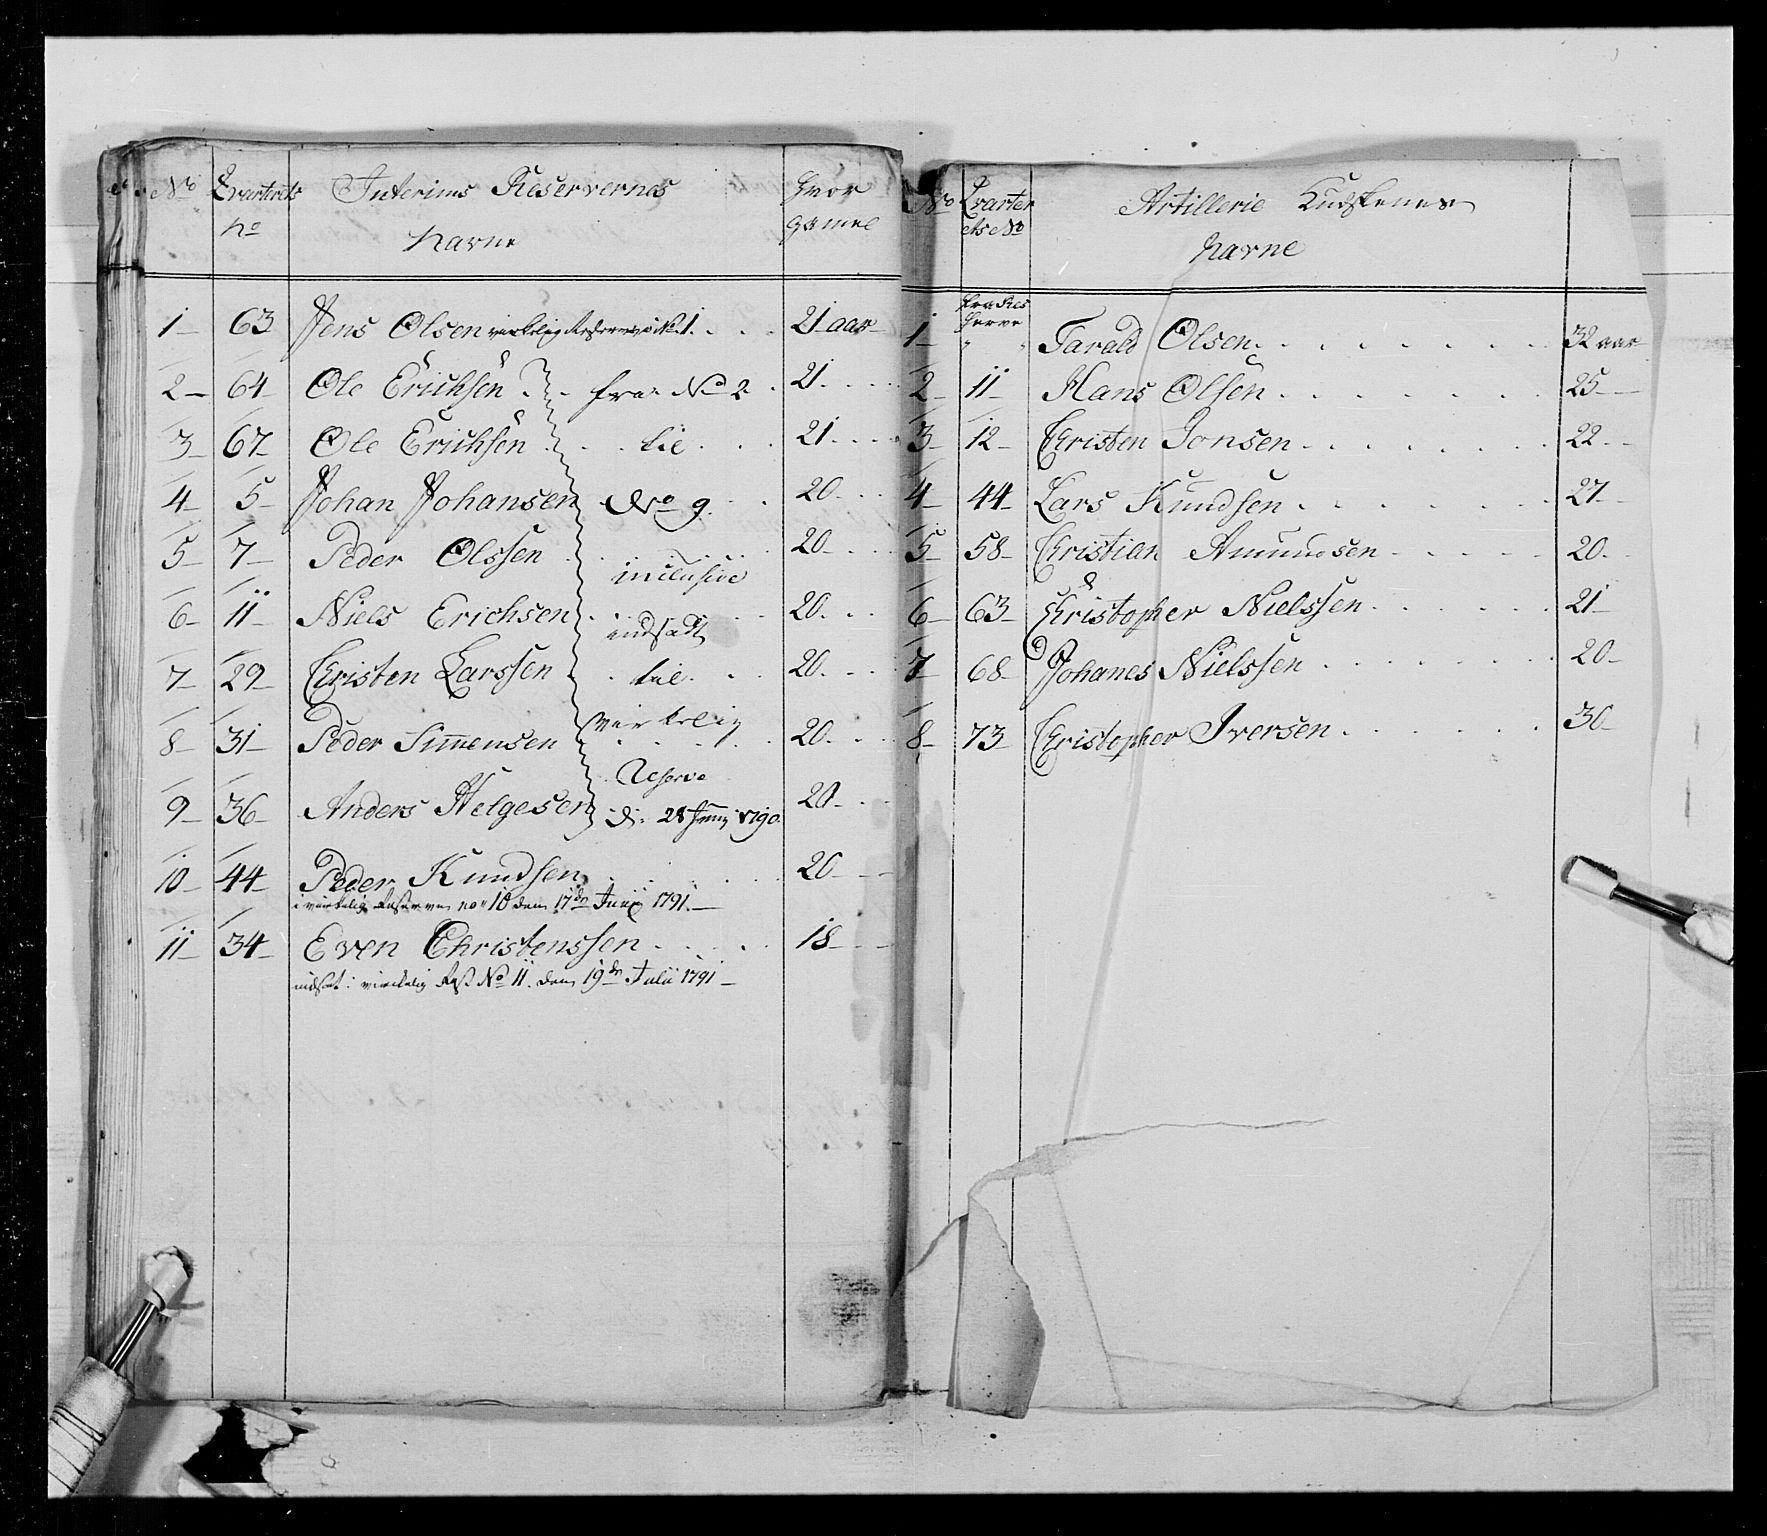 No Qvarterets Interims Reservernes Hvor
No Navne gamel
1 63 Jens Olsen virkelig Reserve 1. 21 aar
2 64 Ole Erichsen fra No 2 21
3 67 Ole Erichsen til 21
4 5 Johan Johansen No 9. 20
5 7 Peder Olssen 20
inclusive
6 11 Niels Erichsen 20
indsadt
7 29 Christen Larssen til 20
virkelig
8 31 Peder Simensen 20
Reserve
9 36 Anders Helgesen d. 28 Juny 1790. 20
10 44 Peder Knudsen 20
i virkelig Reserven no 10 den 17de Juny 1791.
11 34 Even Christenssen 18
indsat i virkelig Ress No 11. den 19de Julii 1791
No Qvarter Artillerie Kudskenes
ets No Navne
fra Res
serve
1 " " Tarald Olsen 32 aar
2 11 Hans Olsen 25
3 12 Christen Jonsen 22
4 44 Lars Knudsen 27
5 58 Christian Amundsen 20
6 63 Christopher Nielssen 21
7 68 Johanes Nielssen 20
8 73 Christopher Iversen 30